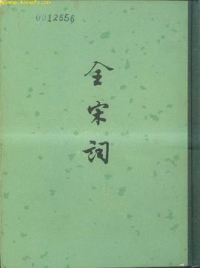 0012656
全宋詞